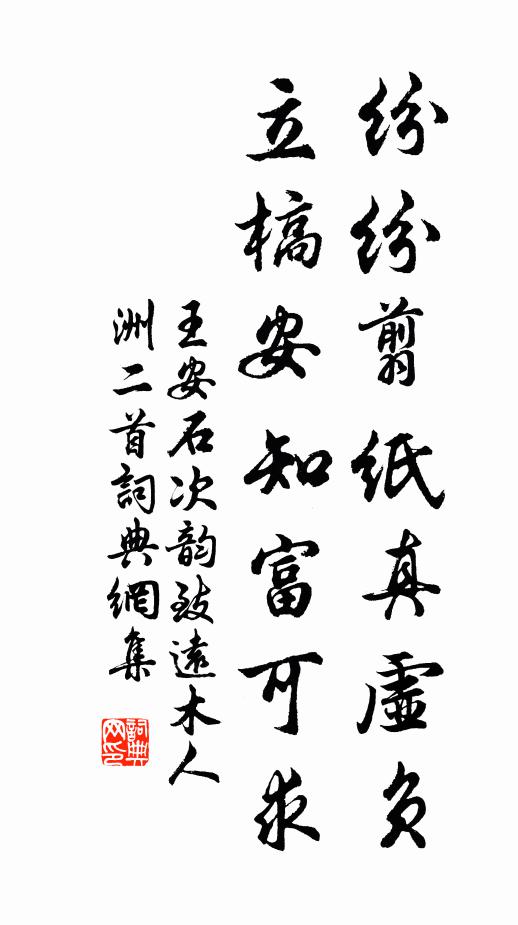 纷纷翦纸真虚负
立槁安知富可求
王安石次韵致遠木人
洲二首詞典網集
詞典网印